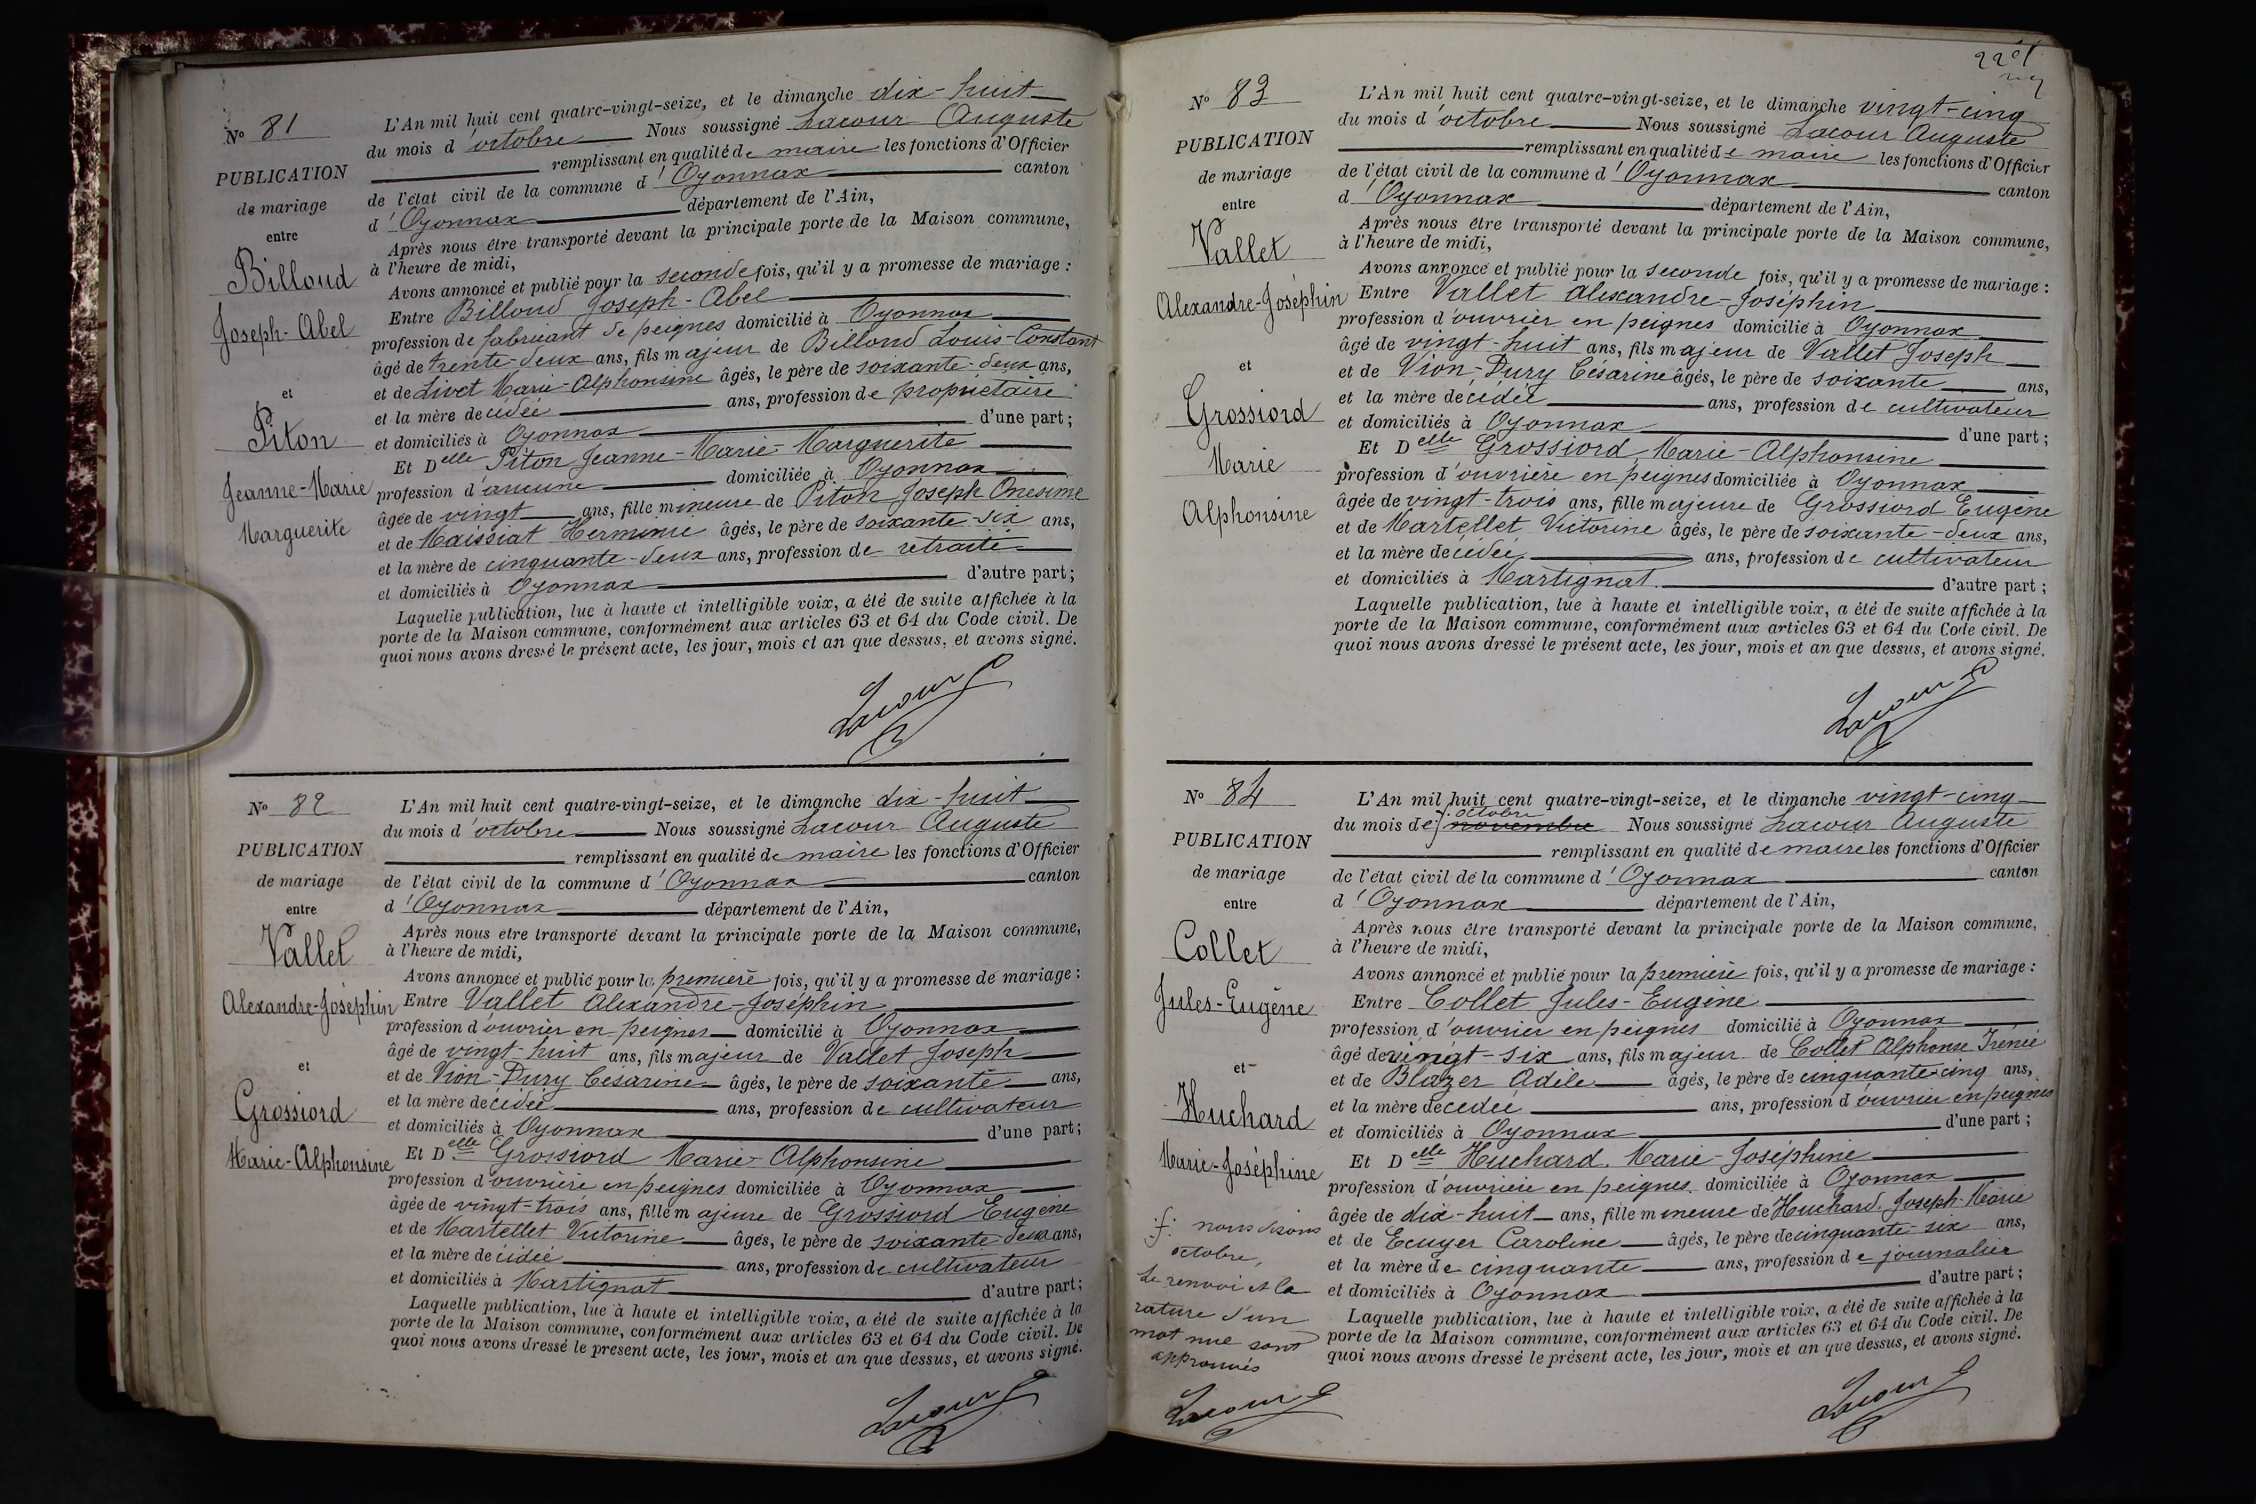 No 81
PUBLICATION
de mariage
entre
Billoud
Joseph-Abel
et
Piton
Jeanne-Marie
Marguerite
L'An mil huit cent quatre-vingt-seize, et le dimanche dix-huit
du mois d'octobre Nous soussigné Lacour Auguste
remplissant en qualité de maire les fonctions d'Officier
de l'état civil de la commune d'Oyonnax canton
d'Oyonnax département de l'Ain,
Après nous être transporté devant la principale porte de la Maison commune,
à l'heure de midi,
Avons annoncé et publié pour la seconde fois, qu'il y a promesse de mariage :
Entre Billoud Joseph-Abel
profession de fabricant de peignes domicilié à Oyonnax
âgé de trente-deux ans, fils majeur de Billoud Louis-Constant
et de Livet Marie-Alphonsine âgés, le père de soixante-deux ans,
et la mère décédée ans, profession de propriétaire
et domiciliés à Oyonnax d'une part ;
Et Delle Piton Jeanne-Marie-Marguerite
profession d'aucune domiciliée à Oyonnax
âgée de vingt ans, fille mineure de Piton Joseph Onésime
et de Maissiat Herminie âgés, le père de soixante-six ans,
et la mère de cinquante-deux ans, profession de retraité
et domiciliés à Oyonnax d'autre part ;
Laquelle publication, lue à haute et intelligible voix, a été de suite affichée à la
porte de la Maison commune, conformément aux articles 63 et 64 du Code civil. De
quoi nous avons dressé le présent acte, les jour, mois et an que dessus, et avons signé.
Lacour
No 82
PUBLICATION
de mariage
entre
Vallet
Alexandre-Joséphin
et
Grossiord
Marie-Alphonsine
L'An mil huit cent quatre-vingt-seize, et le dimanche dix-huit
du mois d'octobre Nous soussigné Lacour Auguste
remplissant en qualité de maire les fonctions d'Officier
de l'état civil de la commune d'Oyonnax canton
d'Oyonnax département de l'Ain,
Après nous être transporté devant la principale porte de la Maison commune,
à l'heure de midi,
Avons annoncé et publié pour la première fois, qu'il y a promesse de mariage :
Entre Vallet Alexandre-Joséphin
profession d'ouvrier en peignes domicilié à Oyonnax
âgé de vingt-huit ans, fils majeur de Vallet Joseph
et de Vion-Dury Césarine âgés, le père de soixante ans,
et la mère décédée ans, profession de cultivateur
et domiciliés à Oyonnax d'une part ;
Et Delle Grossiord Marie-Alphonsine
profession d'ouvrière en peignes domiciliée à Oyonnax
âgée de vingt-trois ans, fille majeure de Grossiord Eugène
et de Martellet Victorine âgés, le père de soixante-deux ans,
et la mère décédée ans, profession de cultivateur
et domiciliés à Martignat d'autre part ;
Laquelle publication, lue à haute et intelligible voix, a été de suite affichée à la
porte de la Maison commune, conformément aux articles 63 et 64 du Code civil. De
quoi nous avons dressé le présent acte, les jour, mois et an que dessus, et avons signé.
Lacour
No 83
PUBLICATION
de mariage
entre
Vallet
Alexandre-Joséphin
et
Grossiord
Marie
Alphonsine
L'An mil huit cent quatre-vingt-seize, et le dimanche vingt-cinq
du mois d'octobre Nous soussigné Lacour Auguste
remplissant en qualité de maire les fonctions d'Officier
de l'état civil de la commune d'Oyonnax canton
d'Oyonnax département de l'Ain,
Après nous être transporté devant la principale porte de la Maison commune,
à l'heure de midi,
Avons annoncé et publié pour la seconde fois, qu'il y a promesse de mariage :
Entre Vallet Alexandre-Joséphin
profession d'ouvrier en peignes domicilié à Oyonnax
âgé de vingt-huit ans, fils majeur de Vallet Joseph
et de Vion-Dury Césarine âgés, le père de soixante ans,
et la mère décédée ans, profession de cultivateur
et domiciliés à Oyonnax d'une part ;
Et Delle Grossiord Marie-Alphonsine
profession d'ouvrière en peignes domiciliée à Oyonnax
âgée de vingt-trois ans, fille majeure de Grossiord Eugène
et de Martellet Victorine âgés, le père de soixante-deux ans,
et la mère décédée ans, profession de cultivateur
et domiciliés à Martignat d'autre part ;
Laquelle publication, lue à haute et intelligible voix, a été de suite affichée à la
porte de la Maison commune, conformément aux articles 63 et 64 du Code civil. De
quoi nous avons dressé le présent acte, les jour, mois et an que dessus, et avons signé.
Lacour
No 84
PUBLICATION
de mariage
entre
Collet
Jules-Eugène
et
Huchard
Marie-Joséphine
f: nous disons
octobre,
Le renvoi et la
rature d'un
mot nul sont
approuvés
Lacour
L'An mil huit cent quatre-vingt-seize, et le dimanche vingt-cinq
octobre
du mois de f. novembre Nous soussigné Lacour Auguste
remplissant en qualité de maire les fonctions d'Officier
de l'état civil de la commune d'Oyonnax canton
d'Oyonnax département de l'Ain,
Après nous être transporté devant la principale porte de la Maison commune,
à l'heure de midi,
Avons annoncé et publié pour la première fois, qu'il y a promesse de mariage :
Entre Collet Jules-Eugène
profession d'ouvrier en peignes domicilié à Oyonnax
âgé de vingt-six ans, fils majeur de Collet Alphonse Irénée
et de Blazer Adèle âgés, le père de cinquante-cinq ans,
et la mère décédée ans, profession d'ouvrier en peignes
et domiciliés à Oyonnax d'une part ;
Et Delle Huchard Marie-Joséphine
profession d'ouvrière en peignes domiciliée à Oyonnax
âgée de dix-huit ans, fille mineure de Huchard Joseph-Marie
et de Ecuyer Caroline âgés, le père de cinquante-six ans,
et la mère de cinquante ans, profession de journalier
et domiciliés à Oyonnax d'autre part ;
Laquelle publication, lue à haute et intelligible voix, a été de suite affichée à la
porte de la Maison commune, conformément aux articles 63 et 64 du Code civil. De
quoi nous avons dressé le présent acte, les jour, mois et an que dessus, et avons signé.
Lacour